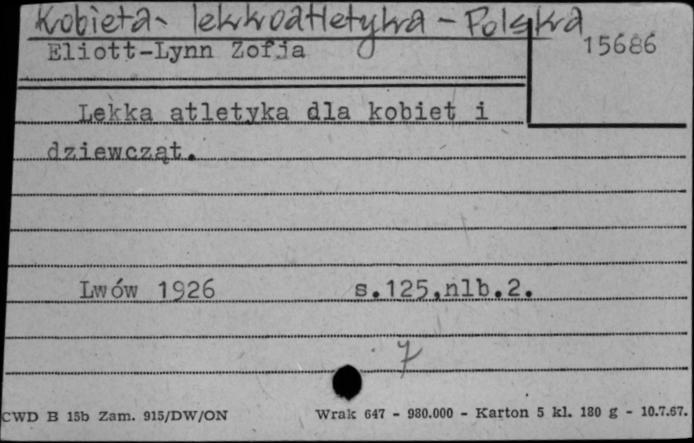 Kobieta - lekkoatletyka - Polska
Eliott-Lynn Zofja
15686
Lekka atletyka dla kobiet i
dziewcząt.
Lwów 1926 s.125,nlb.2.
7
CWD B 15b Zam. 915/DW/ON Wrak 647 - 980.000 - Karton 5 kl. 180 g - 10.7.67.